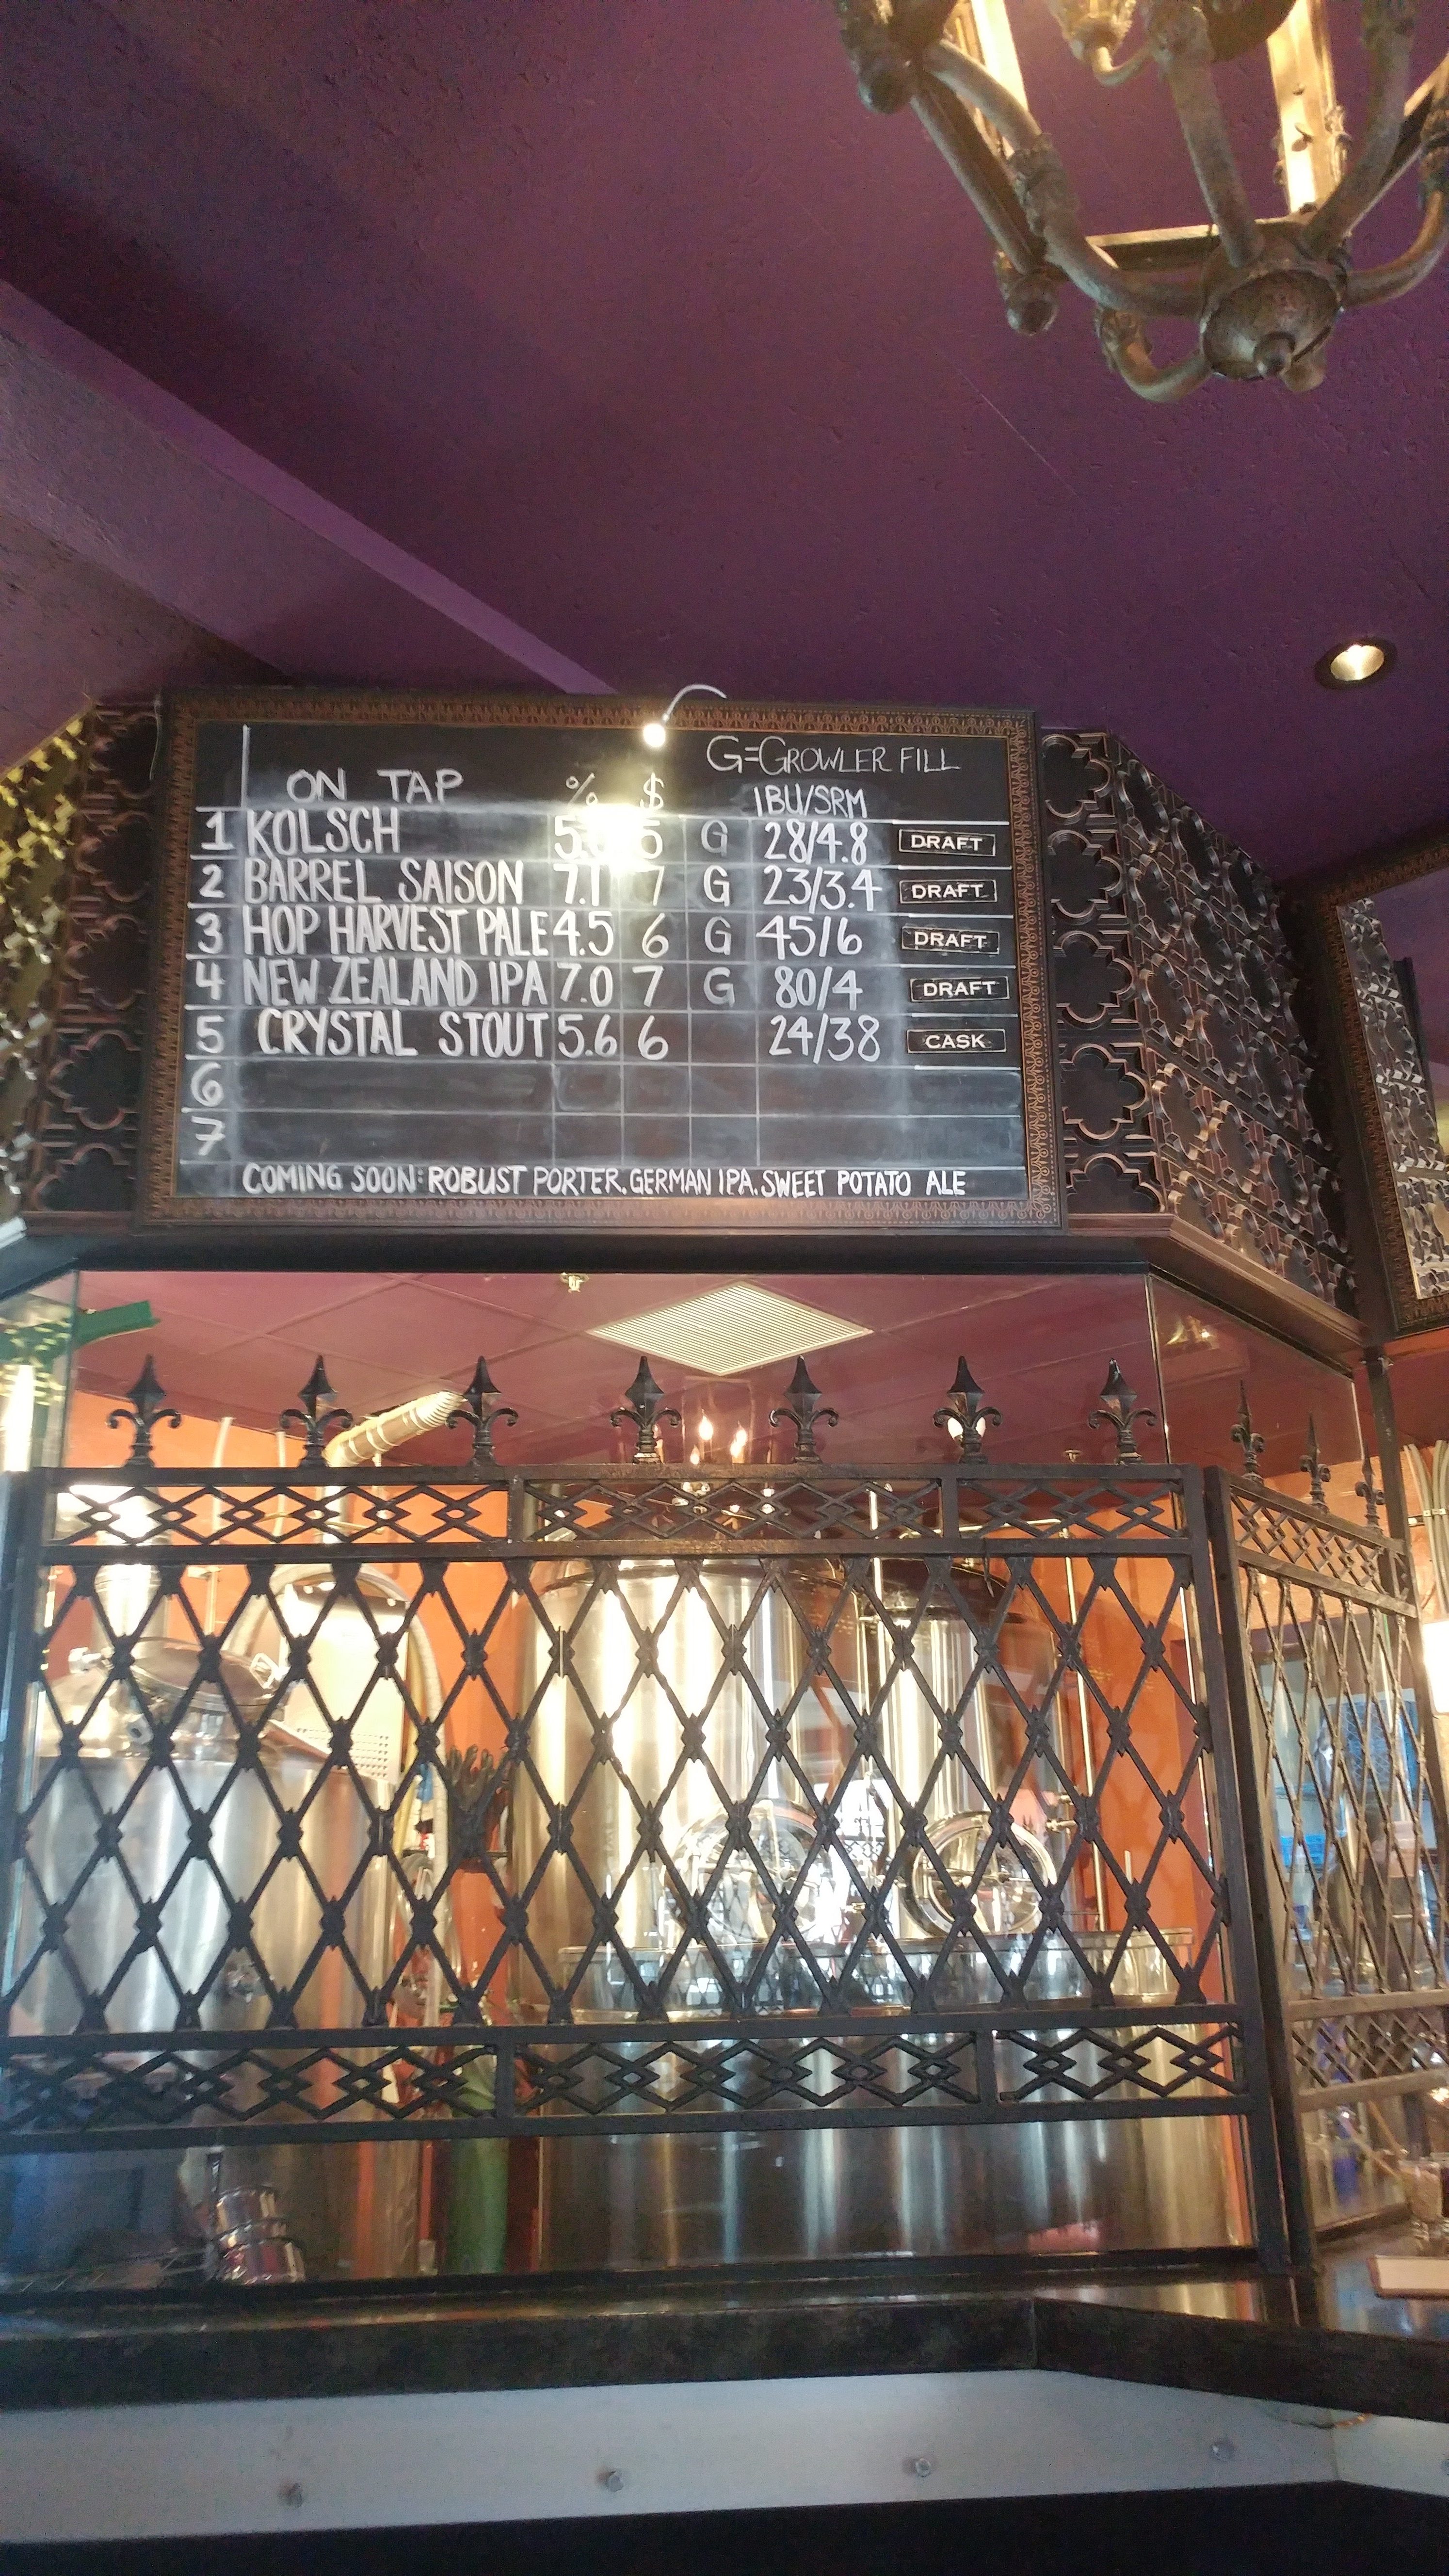 G=GROWLER FILL
ON TAP % $ IBU/SRM
1 KOLSCH 5 G 28/4.8 DRAFT
2 BARREL SAISON 7.1 7 G 23/3.4 DRAFT
3 HOP HARVEST PALE 4.5 6 G 45/6 DRAFT
4 NEW ZEALAND IPA 7.0 7 G 80/4 DRAFT
5 CRYSTAL STOUT 5.6 6 24/38 CASK
6
7
COMING SOON: ROBUST PORTER. GERMAN IPA. SWEET POTATO ALE